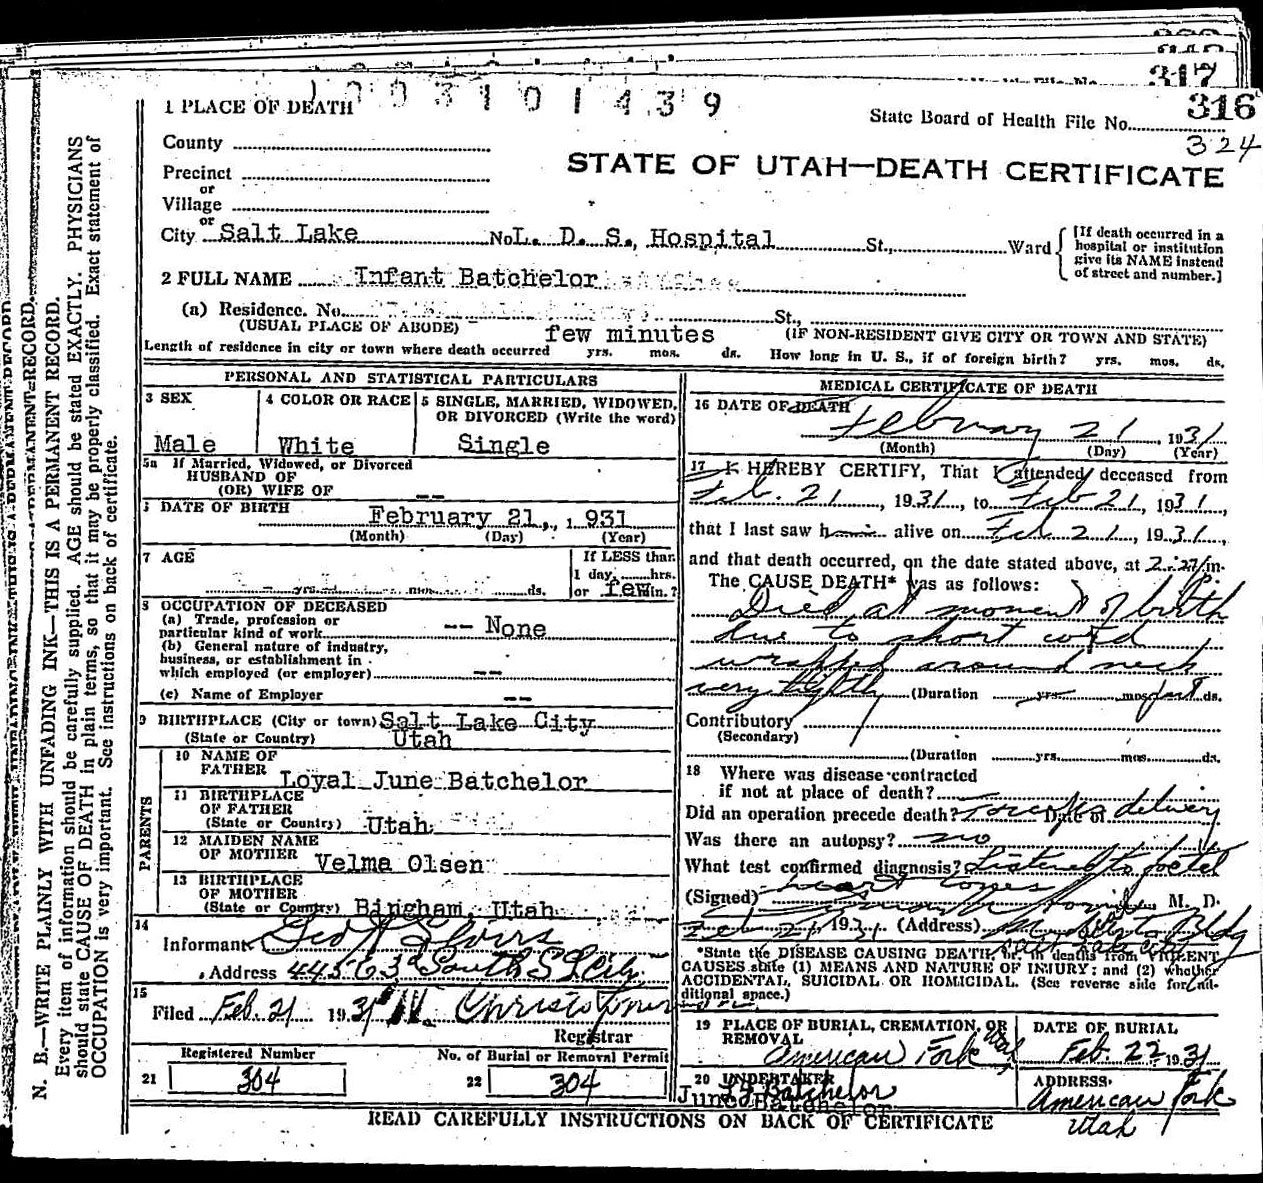 317
316
324
1003101439
State Board of Health File No.
STATE OF UTAH—DEATH CERTIFICATE
1 PLACE OF DEATH
County
Precinct
or
Village
or
City Salt Lake No. L. D. S., Hospital St., Ward
[If death occurred in a hospital or institution give its NAME instead of street and number.]
2 FULL NAME Infant Batchelor
(a) Residence. No. St.,
(USUAL PLACE OF ABODE) (IF NON-RESIDENT GIVE CITY OR TOWN AND STATE)
few minutes
Length of residence in city or town where death occurred yrs. mos. ds. How long in U. S., if of foreign birth? yrs. mos. ds.
PERSONAL AND STATISTICAL PARTICULARS
3 SEX
Male
4 COLOR OR RACE
White
5 SINGLE, MARRIED, WIDOWED, OR DIVORCED (Write the word)
Single
5a If Married, Widowed, or Divorced
HUSBAND OF
(OR) WIFE OF --
DATE OF BIRTH February 21, 1931
(Month) (Day) (Year)
7 AGE
yrs. mos. ds.
If LESS than
1 day, hrs.
or few min.?
8 OCCUPATION OF DECEASED
(a) Trade, profession or
particular kind of work -- None
(b) General nature of industry,
business, or establishment in
which employed (or employer) --
(c) Name of Employer --
9 BIRTHPLACE (City or town) Salt Lake City
(State or Country) Utah
PARENTS
10 NAME OF
FATHER Loyal June Batchelor
11 BIRTHPLACE
OF FATHER
(State or Country) Utah
12 MAIDEN NAME
OF MOTHER Velma Olsen
13 BIRTHPLACE
OF MOTHER
(State or Country) Bingham, Utah
14
Informant Geo
Address 445 E 3rd South S L City
15
Filed Feb. 21 1931
Registrar
Registered Number
21 304
No. of Burial or Removal Permit
22 304
MEDICAL CERTIFICATE OF DEATH
16 DATE OF DEATH
February 21, 1931
(Month) (Day) (Year)
17 I HEREBY CERTIFY, That I attended deceased from
Feb. 21, 1931, to Feb 21, 1931,
that I last saw him alive on Feb 21, 1931,
and that death occurred, on the date stated above, at 2:27 P.m.
The CAUSE DEATH* was as follows:
Died at moment of birth
due to short cord
wrapped around neck
very tightly (Duration yrs. mos. ds.
Contributory
(Secondary)
(Duration yrs. mos. ds.
18 Where was disease contracted
if not at place of death?
Did an operation precede death? Forceps delivery Date of
Was there an autopsy? no
What test confirmed diagnosis? Listened to foetal
heart tones
(Signed) M. D.
Feb. 21, 1931. (Address) Bldg
Salt Lake City
*State the DISEASE CAUSING DEATH, or, in deaths from VIOLENT
CAUSES state (1) MEANS AND NATURE OF INJURY; and (2) whether
ACCIDENTAL, SUICIDAL OR HOMICIDAL. (See reverse side for additional space.)
19 PLACE OF BURIAL, CREMATION, OR
REMOVAL
American Fork Utah
DATE OF BURIAL
Feb. 22 1931
20 UNDERTAKER
Batchelor
June Batchelor
ADDRESS
American Fork
Utah
READ CAREFULLY INSTRUCTIONS ON BACK OF CERTIFICATE
N. B.—WRITE PLAINLY WITH UNFADING INK—THIS IS A PERMANENT RECORD.
Every item of information should be carefully supplied. AGE should be stated EXACTLY. PHYSICIANS
should state CAUSE OF DEATH in plain terms, so that it may be properly classified. Exact statement of
OCCUPATION is very important. See instructions on back of certificate.